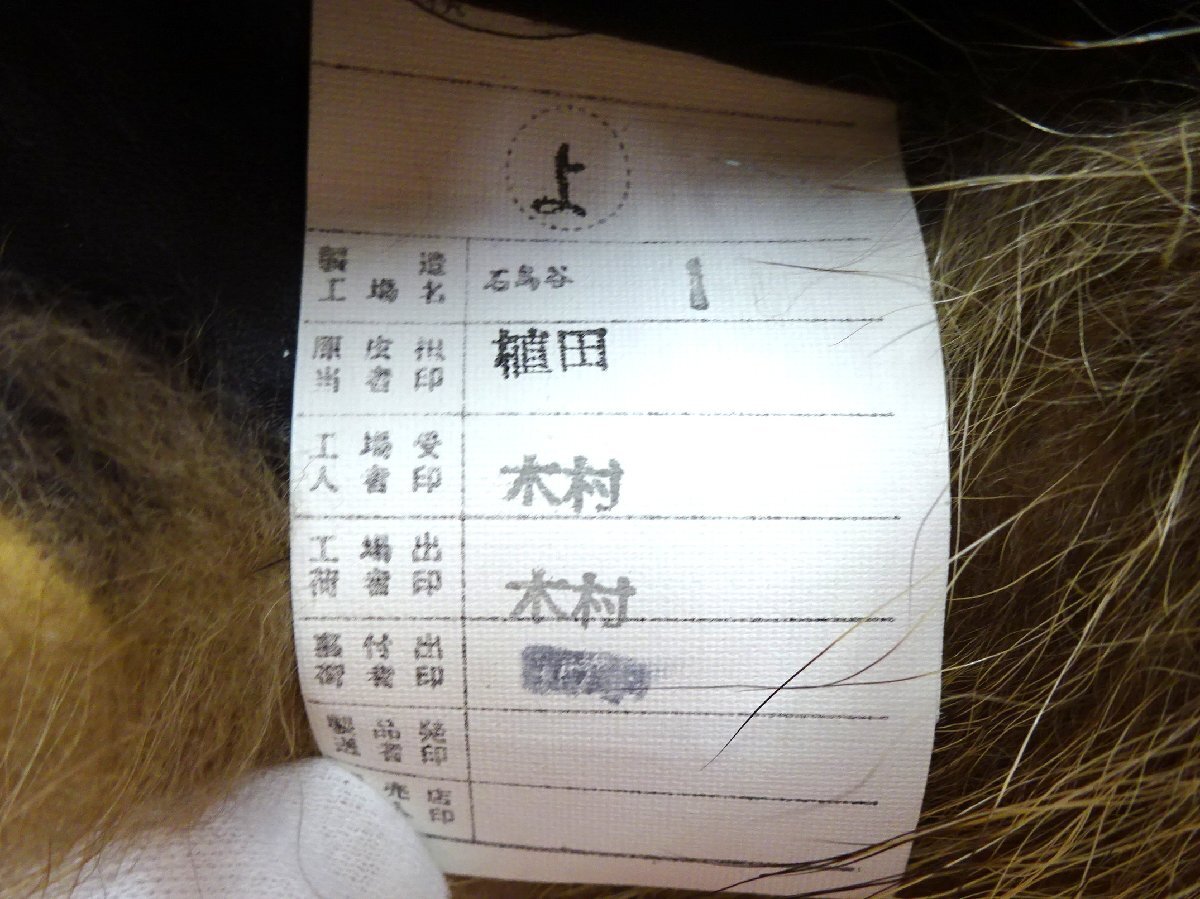 よ
製造
工場名
石鳥谷 1
原皮担
当者印
植田
工場受
人者印
木村
工場出
荷者印
木村
付出
荷者印
製品発
送者印
売店
印